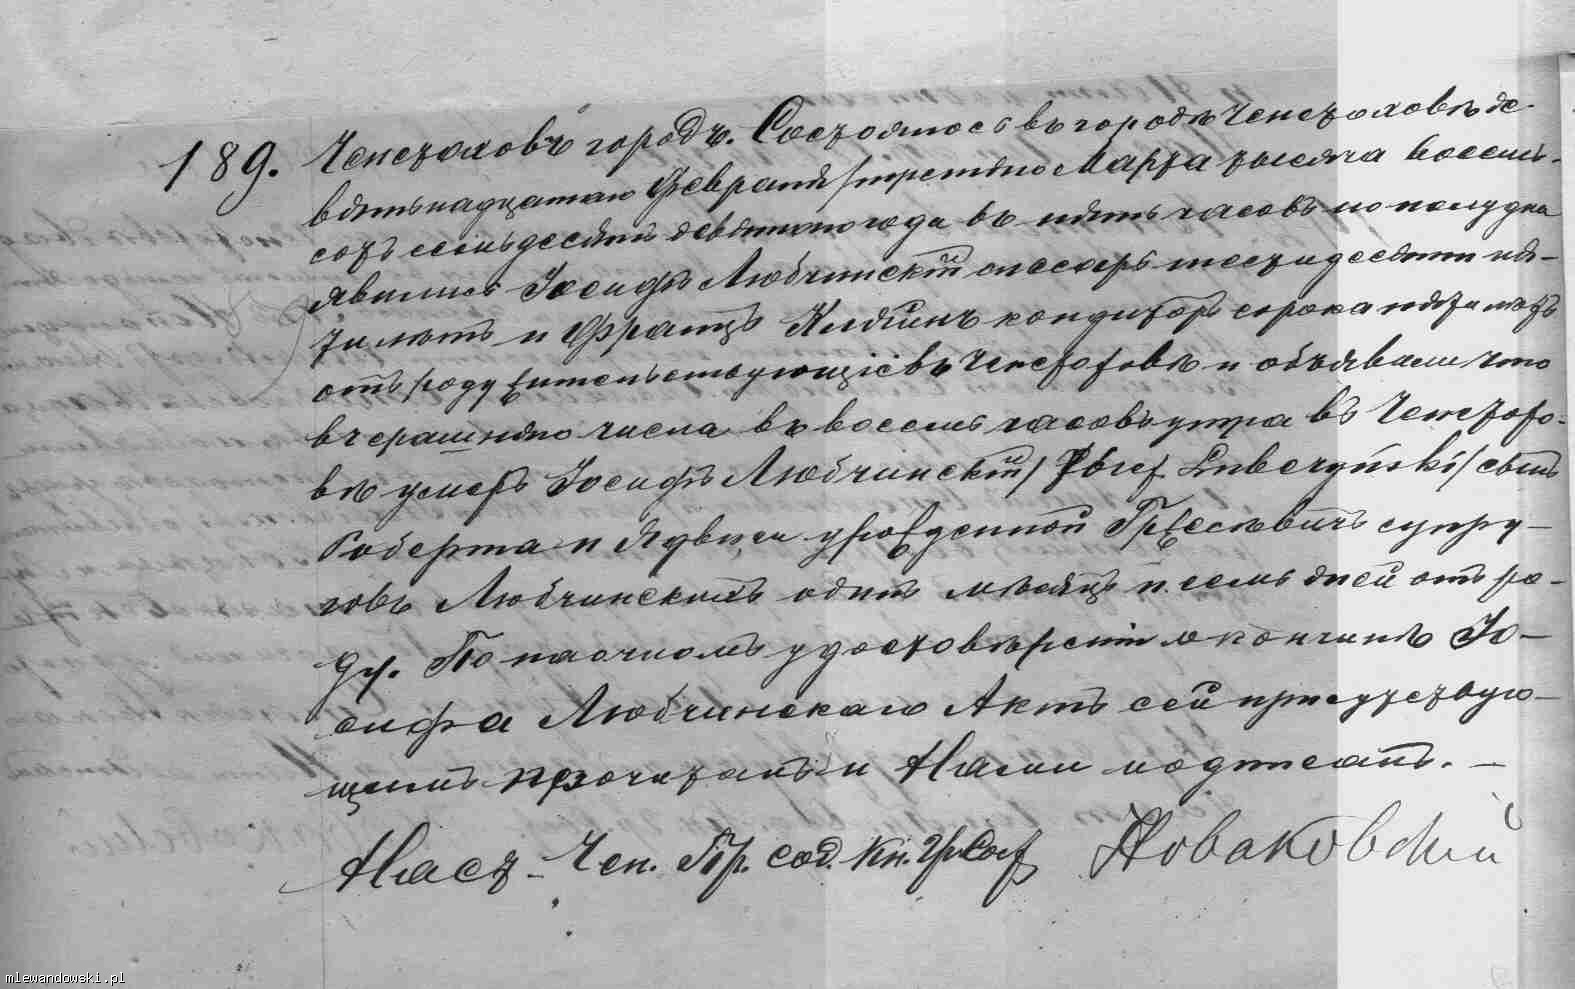 189. Ченстоховъ городъ. Состоялось въ городѣ Ченстоховѣ де-
вятьнадцатаго Февраля/третяго Марта тысяча восемь-
сотъ семьдесятъ девятого года въ пять часовъ по полудни
явились Іосифъ Любчинскій слесарь шестидесяти пя-
ти лѣтъ и Францъ кондиторъ сорока пяти лѣтъ
отъ роду жительствующіе въ Ченстоховѣ и объявили что
вчерашняго числа въ восемь часовъ утра въ Ченстохо-
вѣ умеръ Іосифъ Любчинскій/Józef Lubczyński/сынъ
Роберта и Ядвиги урожденной супру-
говъ Любчинскихъ одинъ мѣсяцъ и семь дней отъ ро-
ду. По наочномъ удостовѣреніи о кончинѣ Іо-
сифа Любчинскаго Актъ сей присутствую-
щимъ прочитанъ и Нами подписанъ. –
Наст. Чен. Пр. Сод. Кн. Гр. Сост Новаковскій
mlewandowski.pl